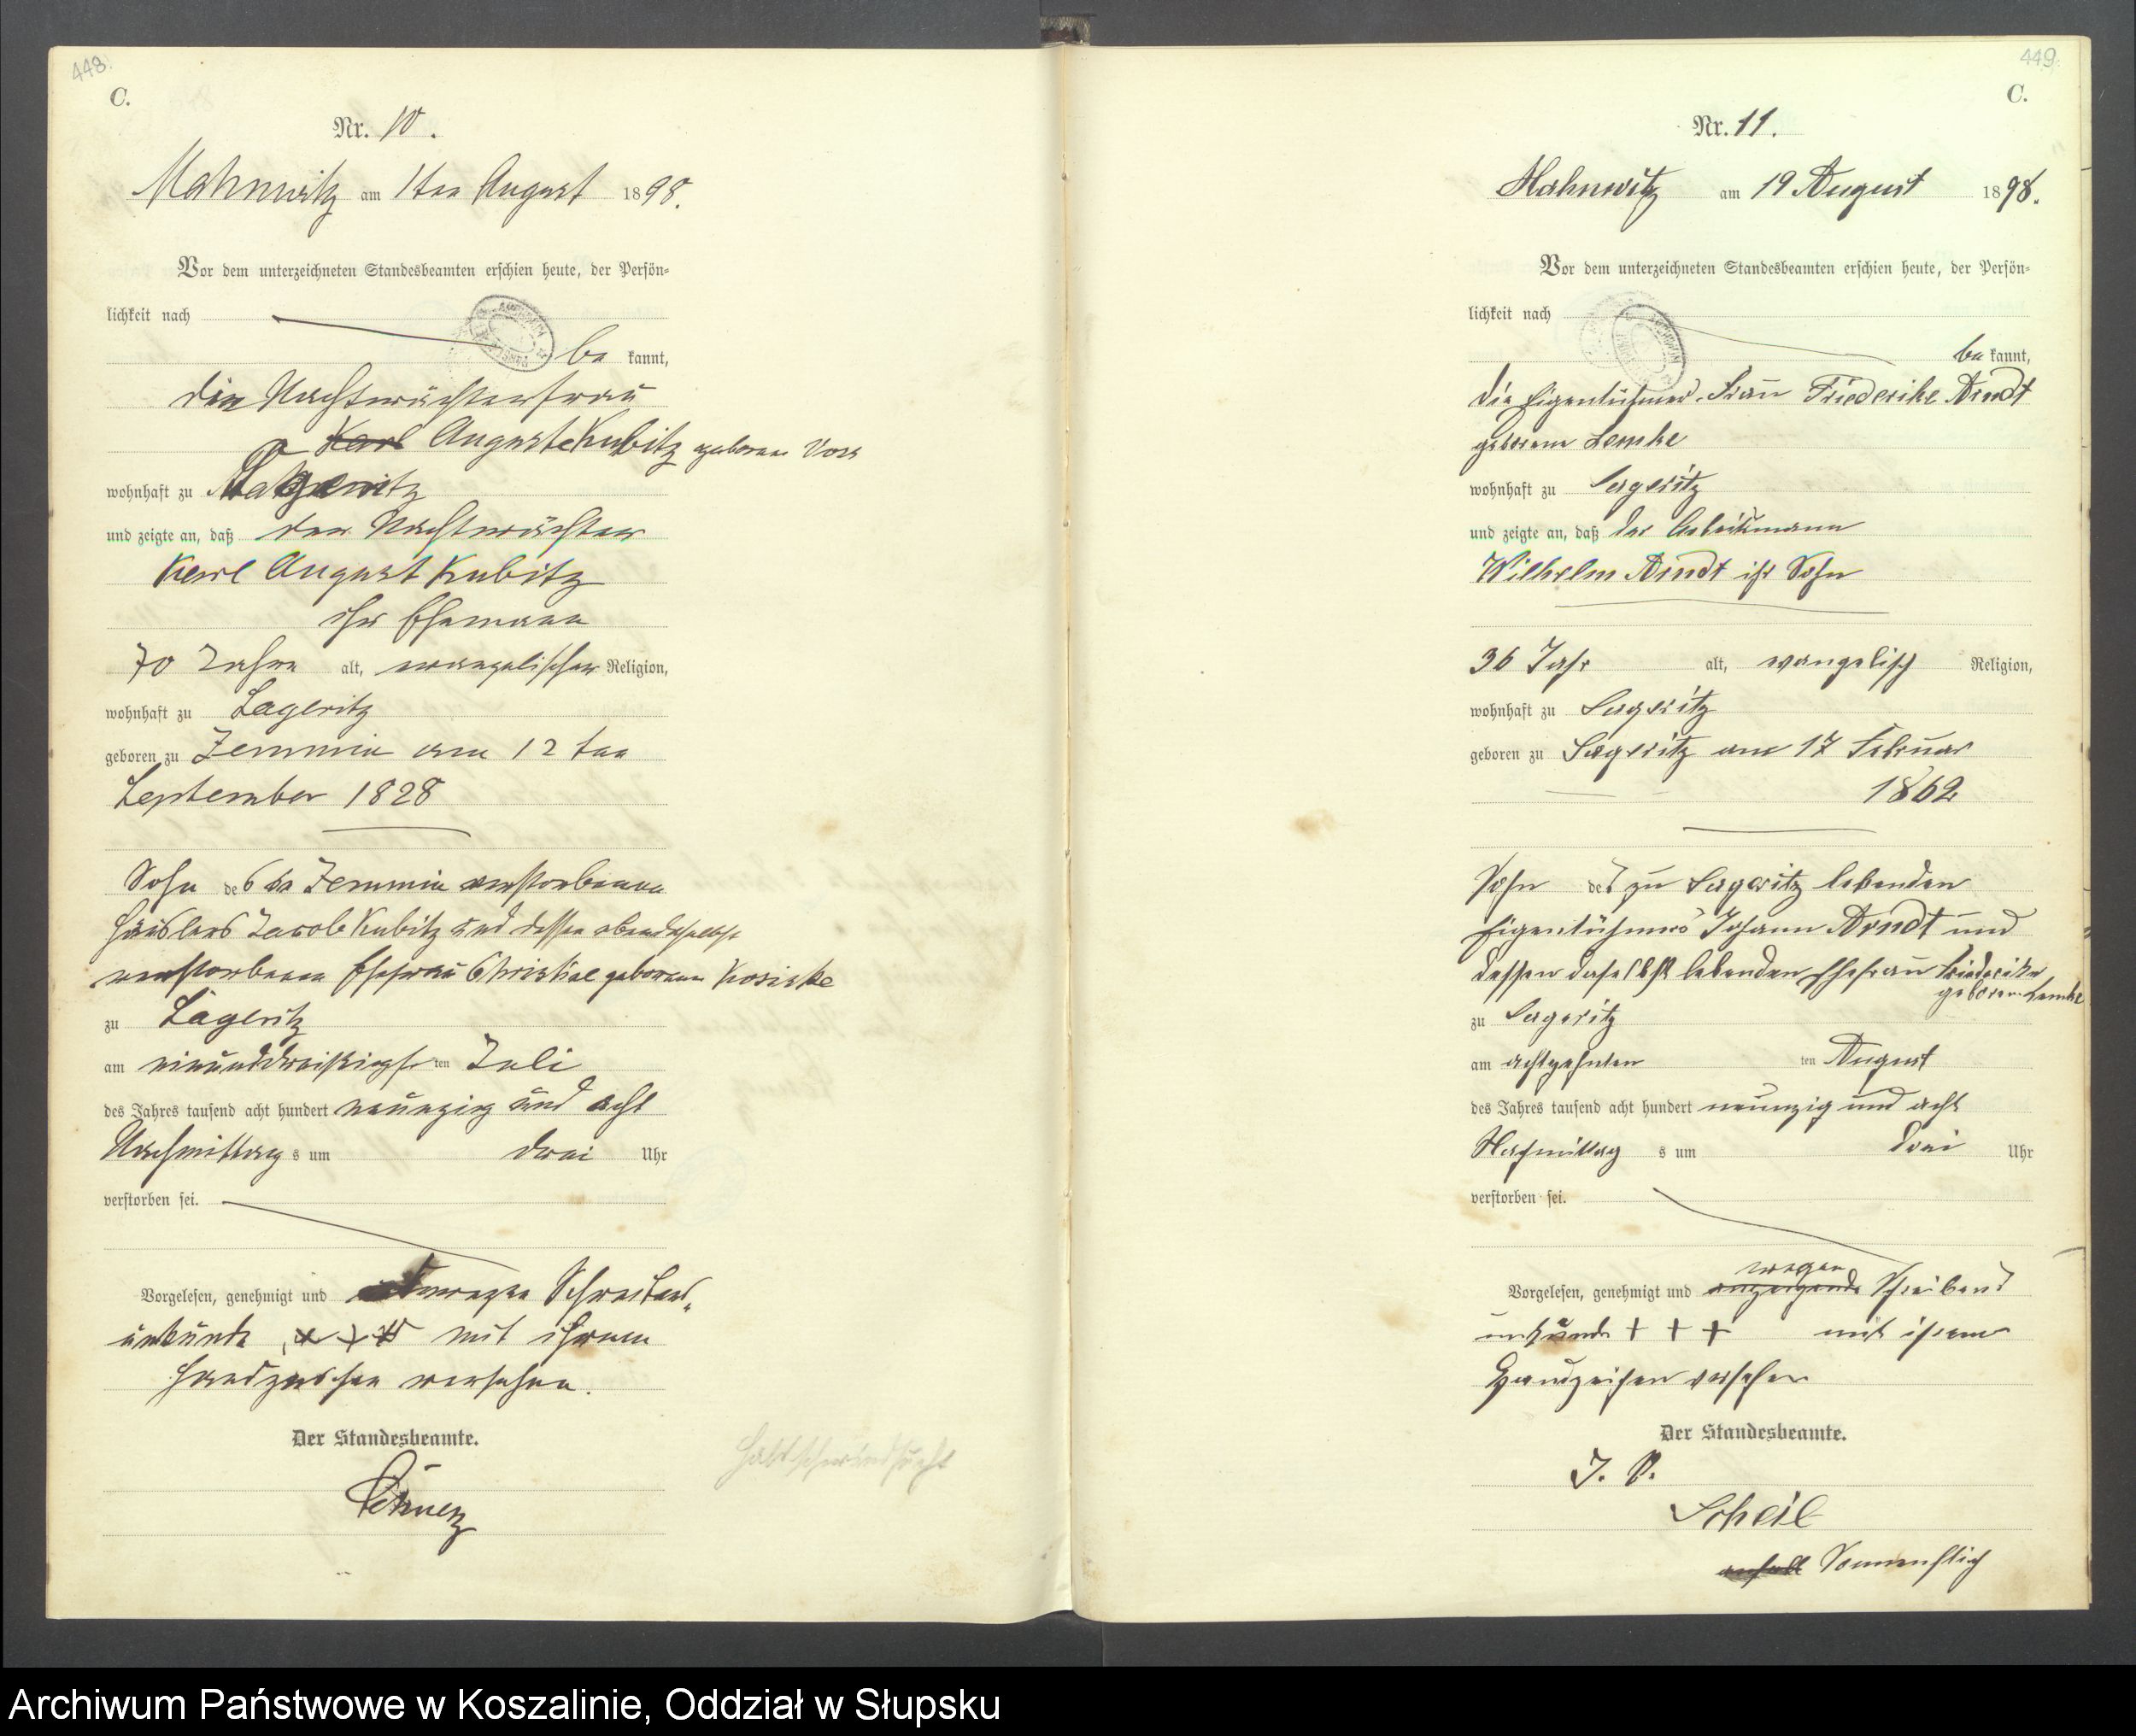 448.
C.
Nr. 10.
Mahnwitz am 1ten August 1898.
Vor dem unterzeichneten Standesbeamten erschien heute, der Persön-
lichkeit nach
be kannt,
die Nachtwächterfrau
Karl Auguste Kubitz geborene Voss
wohnhaft zu
und zeigte an, daß der Nachtwächter
Karl August Kubitz
ihr Ehemann
70 Jahre alt, evangelischer Religion,
wohnhaft zu Lageritz
geboren zu Zemmin am 12ten
September 1828
Sohn des zu Zemmin verstorbenen
Häuslers Jacob Kubitz und dessen ebendaselbst
verstorbenen Ehefrau Christine geborenen
zu Lageritz
am einunddreißigsten Juli
des Jahres tausend acht hundert neunzig und acht
Nachmittags um drei Uhr
verstorben sei.
Vorgelesen, genehmigt und wegen Schreibens-
unkunde, x x x mit ihrem
Handzeichen versehen.
Der Standesbeamte.
449.
C.
Nr. 11.
Mahnwitz am 19 August 1898.
Vor dem unterzeichneten Standesbeamten erschien heute, der Persön-
lichkeit nach
be kannt,
die Eigentühmer-Frau Friederike Arndt
geborene Lemke
wohnhaft zu Lageritz
und zeigte an, daß der Arbeitsmann
Wilhelm Arndt ihr Sohn
36 Jahr alt, evangelisch Religion,
wohnhaft zu Lageritz
geboren zu Lageritz am 17 Februar
1862
Sohn des zu Lageritz lebenden
Eigentühmers Johann Arndt und
dessen daselbst lebenden Ehefrau Friederike
geborene Lemke
zu Lageritz
am achtzehnten ten August
des Jahres tausend acht hundert neunzig und acht
Nachmittag s um drei Uhr
verstorben sei.
wegen
Vorgelesen, genehmigt und Schreibens
unkunde + + + mit ihrem
Handzeichen versehen
Der Standesbeamte.
J. V.
Scheil
Sonnenstich
Archiwum Państwowe w Koszalinie, Oddział w Słupsku